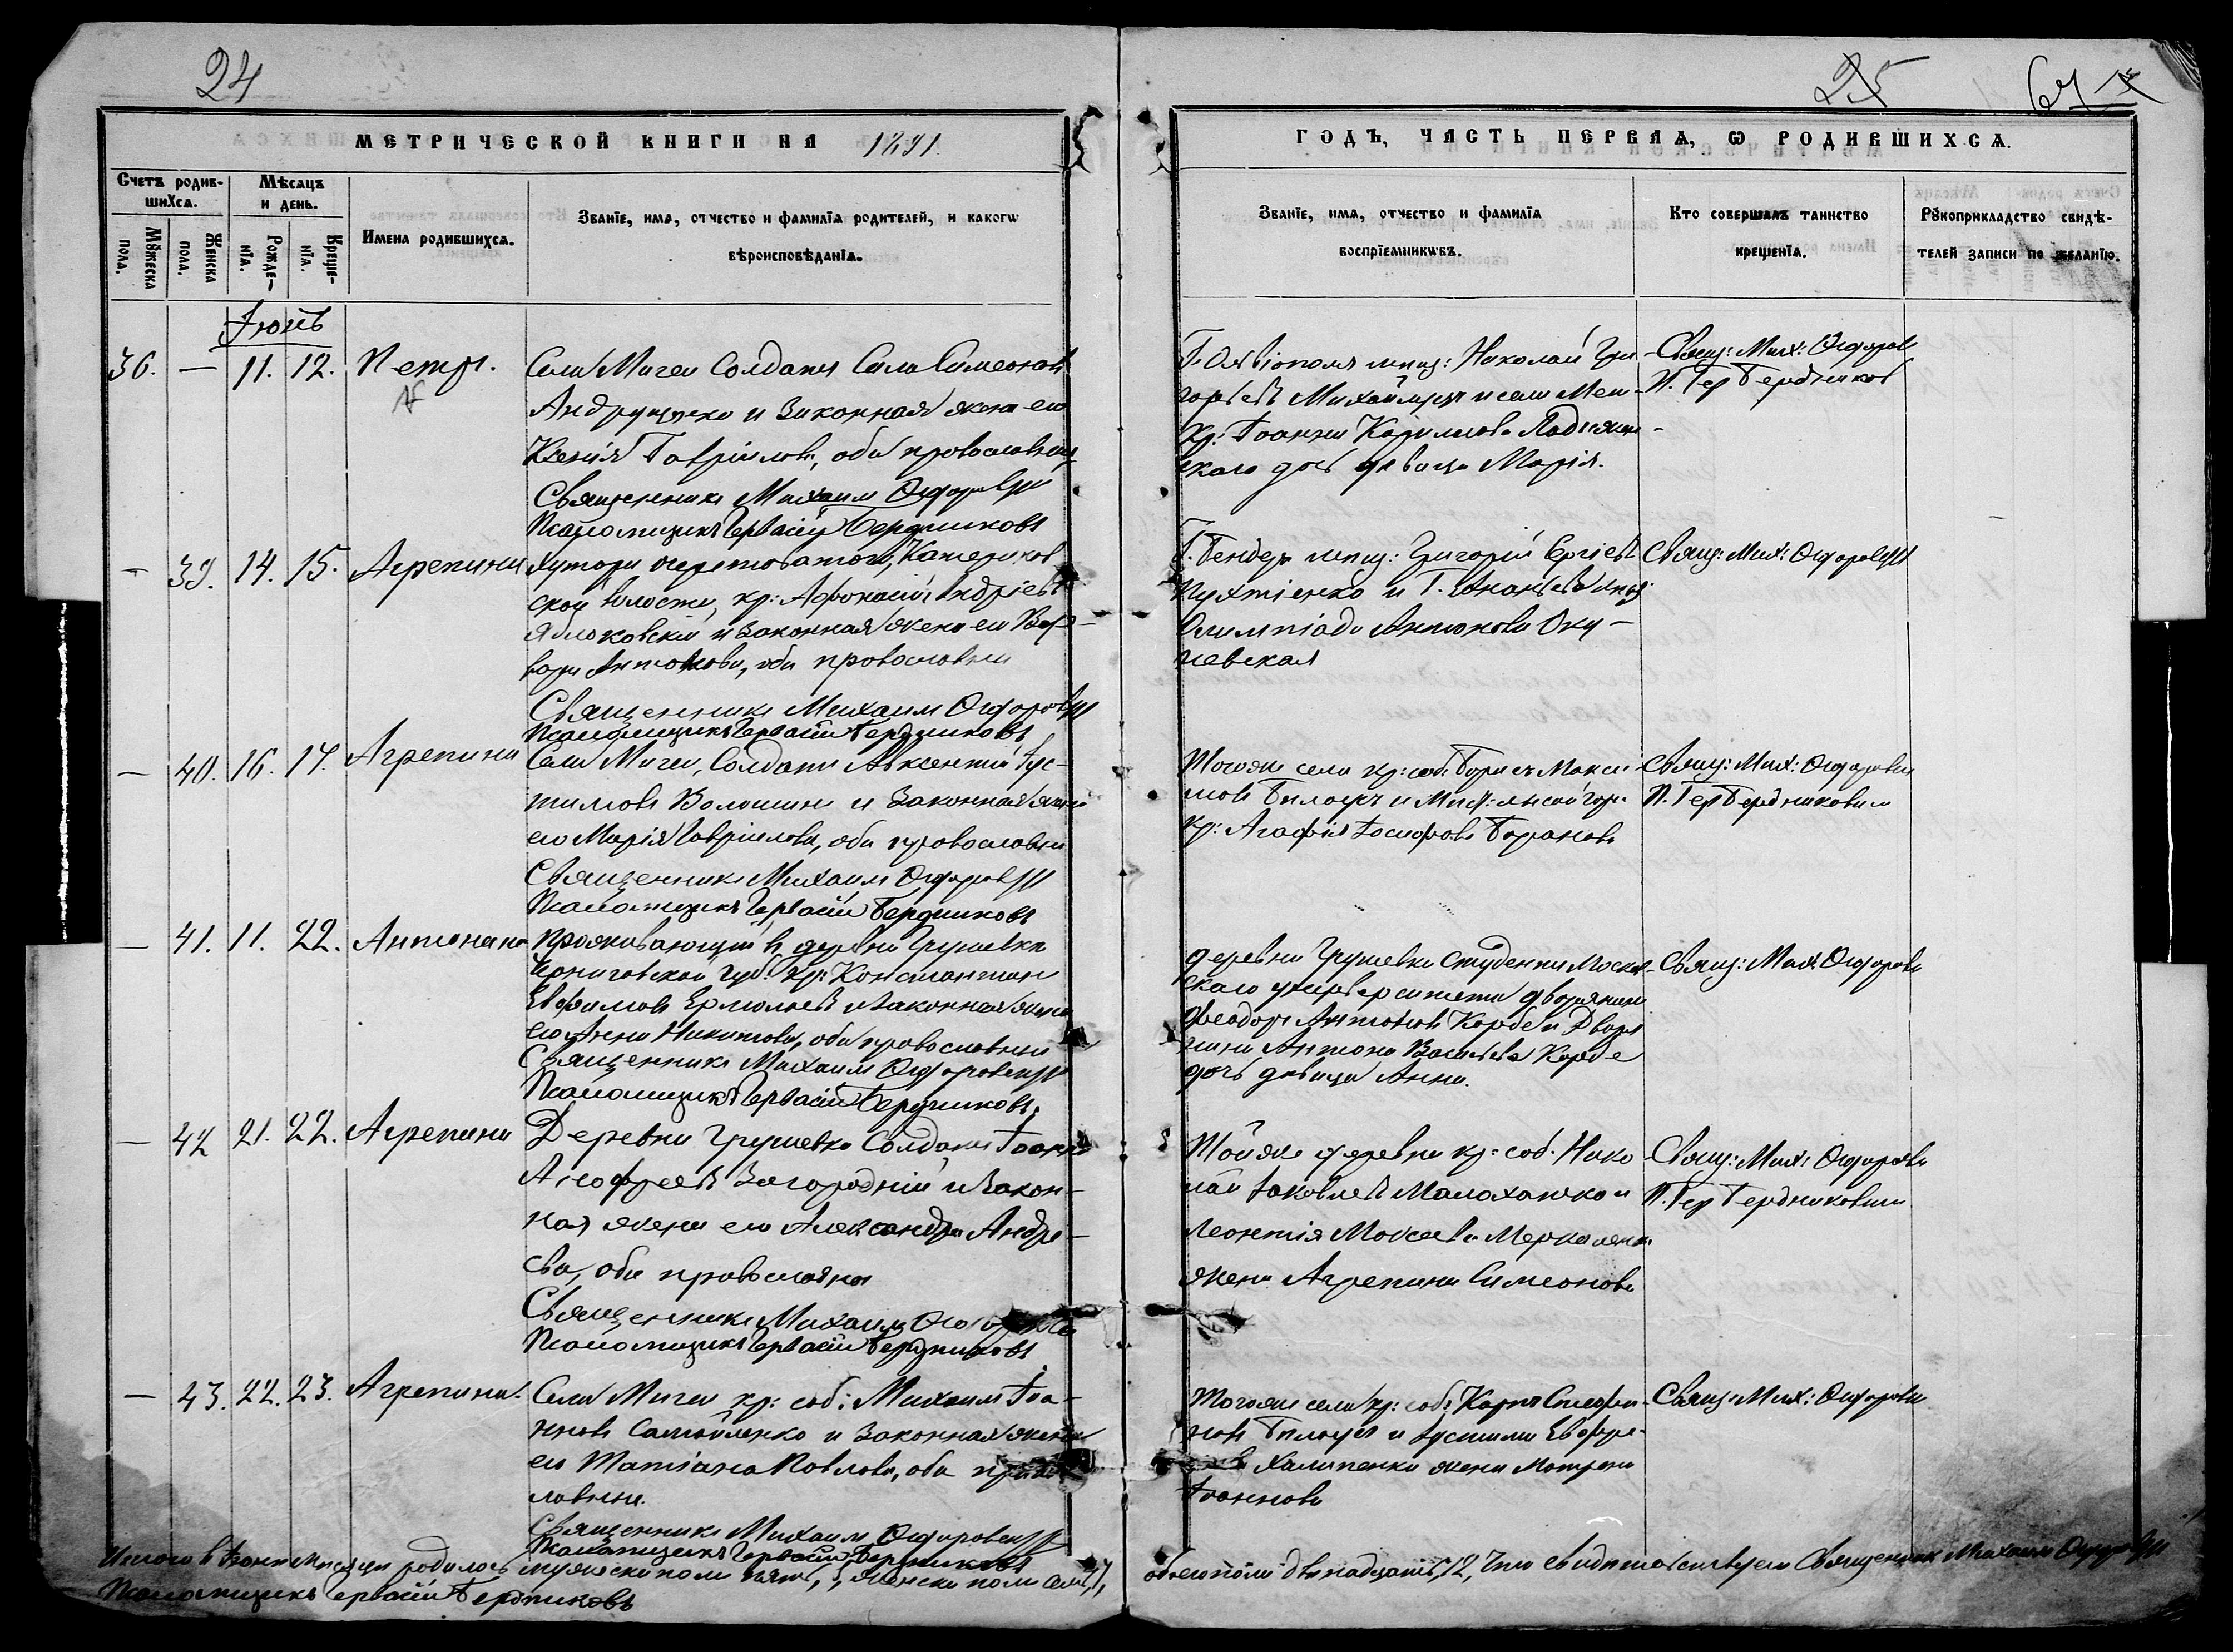 24
МЕТРИЧЕСКОЙ КНИГИ НА 1891
Счетъ родив-
шихся.
Мѣсяцъ
и день.
Имена родившихся.
Званїе, имя, отчество и фамилїя родителей, и какогѡ
вѣроисповѣданїя.
Мꙋжеска
пола.
Женска
пола.
Рожде-
нїя.
Креще-
нїя.
Іюнь
36. — 11. 12. Петръ.
Села Мигеи Солдатъ Сила Симеоновъ
Андрущенко и Законная жена его
Ксенія Гавріилова, оба православны
Священникъ Михаилъ
Псаломщикъ Гервасій Бердниковъ
— 39. 14. 15. Агрепина
Хутора Катеринов
ской волости, кр: Афонасій Андріевъ
Яблоковскій и Законная жена его Вар-
вара Антонова, оба православны
Священникъ Михаилъ
Псаломщикъ Гервасій Бердниковъ
— 40. 16. 17. Агрепина
Села Мигеи, Солдатъ Авксентій Іус-
тиновъ Волошинъ и Законная жена
его Марія Гавріилова, оба православны
Священникъ Михаилъ
Псаломщикъ Гервасій Бердниковъ
— 41. 11. 22. Антонина
Проживающій въ деревни Грушевки
Черниговской губ. кр: Константинъ
Евфимовъ Ермолаевъ и Законная жена
его Анна Никитова, оба православны
Священникъ Михаилъ
Псаломщикъ Гервасій Бердниковъ
— 42 21. 22. Агрепина
Деревни Грушевки Солдатъ Іоаннъ
Загородній и Закон-
ная жена его Александра Андре-
ева, оба православны
Священникъ Михаилъ
Псаломщикъ Гервасій Бердниковъ
— 43. 22. 23. Агрепина.
Села Мигеи кр: соб: Михаилъ Іоа-
нновъ Самойленко и Законная жена
его Татіана Павлова, оба право
славны.
Священникъ Михаилъ
Псаломщикъ Гервасій Бердниковъ
Итого в Іюни месяци родилось мужеска пола пять, 5, женска пола семь, 7,
Псаломщикъ Гервасій Бердниковъ
25
ГОДЪ, ЧАСТЬ ПЕРВАЯ, Ѡ РОДИВШИХСЯ.
Званїе, имя, отчество и фамилїя
воспрїемникѡвъ.
Кто совершалъ таинство
крещенїя.
Рꙋкоприкладство свидѣ-
телей записи по желанїю.
Г. Ольвіополя мещ: Николай Гри
горьевъ и села Меч-
кр: Іоанна Карилова
скаго дочь девица Марія.
Свящ: Мих:
П. Гер Бердников
Г. Бендеръ мещ: Григорій Сергіевъ
и Г. Ананьева мещ:
Олимпіада Антонова Оку-
невская
Свящ: Мих:
Тогоже села кр: соб: Борисъ Макси
мовъ Билоусъ и
кр: Агафія Іосифова Баранова
Свящ: Мих:
П. Гер Бердниковым
деревни Грушевки Студентъ Москов-
скаго университета дворянинъ
Феодоръ Антоновъ Корбе и Дворя
нина Антона Васильева Корбе
дочь девица Анна.
Свящ: Мих:
Тойже деревни кр: соб. Нико
лай Іаковлевъ Малахатко и
Леонтія Моисеева
жена Агрепина Симеонова
Свящ: Мих:
П. Гер Бердниковым
Тогоже села кр: соб: Карпъ Стефа-
новъ Билоусъ и Іустина Евфре-
Халипенка жена Матрена
Іоаннова
Свящ: Мих:
обоего пола двенадцать, 12, Что свидетельствуемъ Священникъ Михаилъ